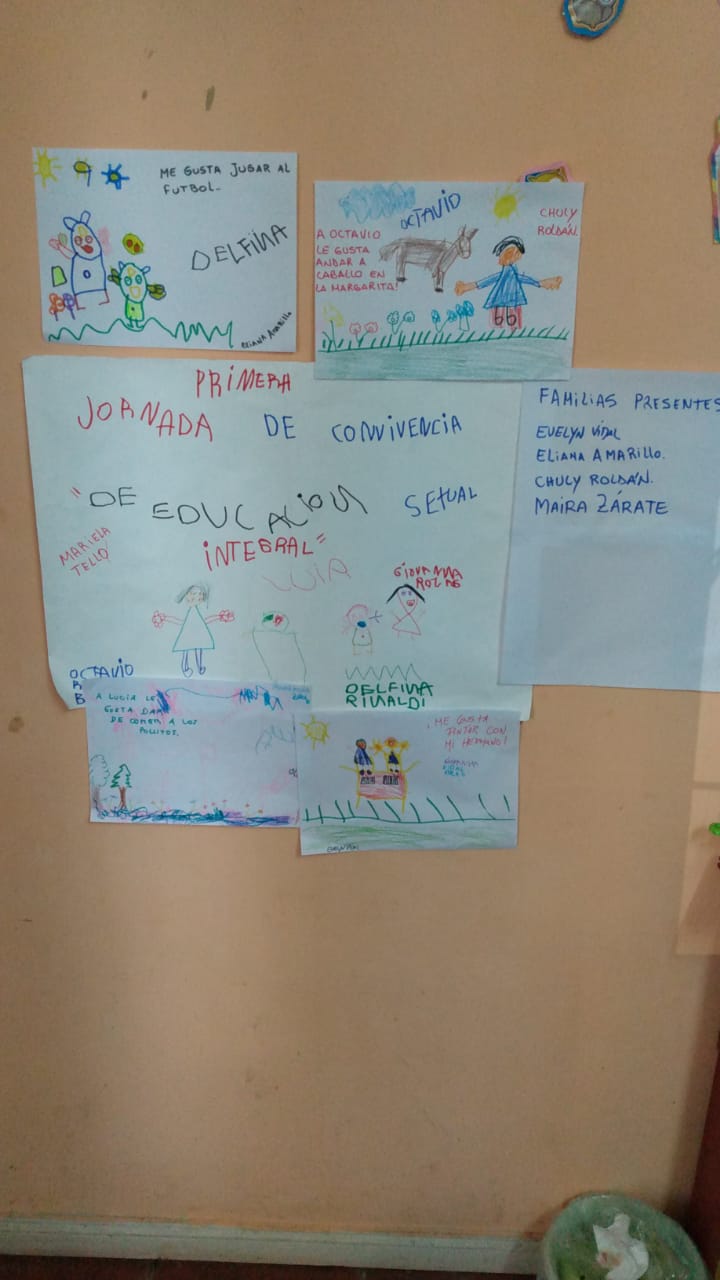 ME GUSTA JUGAR AL
FUTBOL.
DELFINA
ELIANA AMARILLO
OCTAVIO
CHULY
ROLDÁN.
A OCTAVIO
LE GUSTA
ANDAR A
CABALLO EN
LA MARGARITA!
PRIMERA
JORNADA DE CONVIVENCIA
"DE EDUCACION SEXUAL
INTEGRAL"
MARIELA
TELLO
LUIA
GIOVANNA
OCTAVIO
DELFINA
RINALDI
FAMILIAS PRESENTES
EVELYN VIDAL
ELIANA AMARILLO.
CHULY ROLDÁN.
MAIRA ZÁRATE
A LUCIA LE
GUSTA DAR
DE COMER A LOS
POLLITOS.
¡ME GUSTA
PINTAR CON
MI HERMANO!